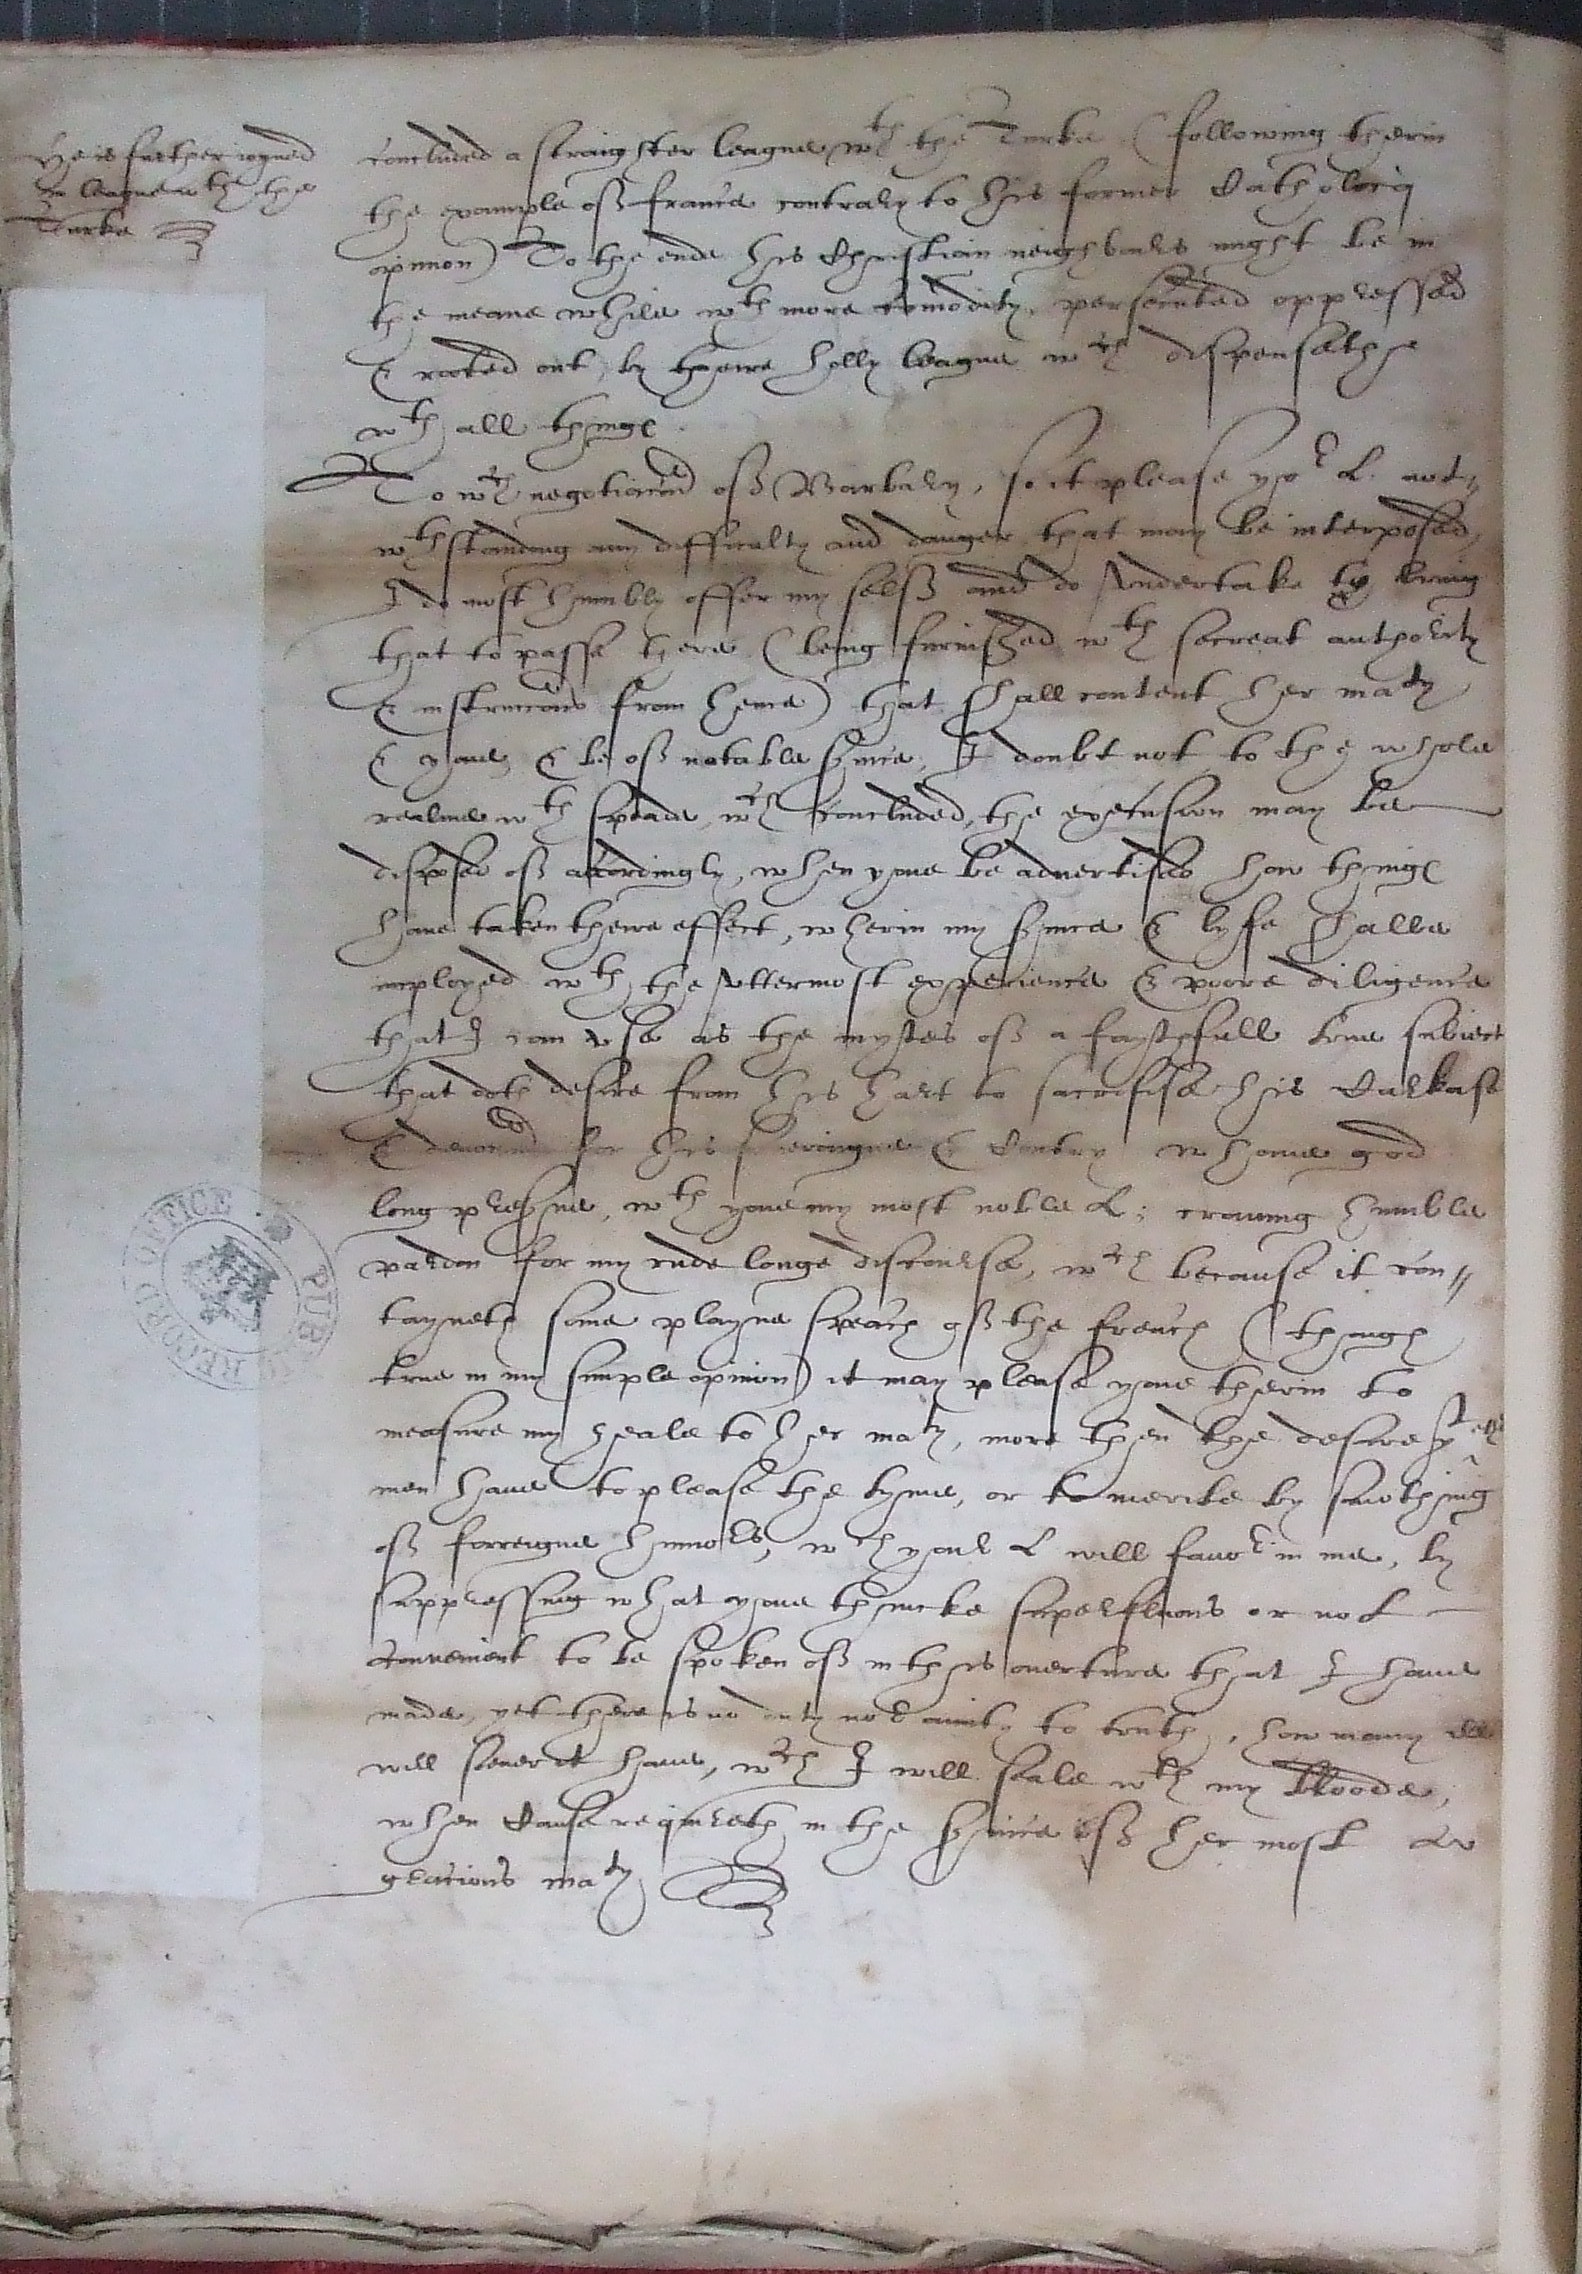 He is further ioyned
in league wth the
Turke
concluded a straighter league wth the Turke (following therin
the example off france contrary to his former Catholocq
opinion) To the ende his Christian neighbours might be in
the meane while wth more comodity, persecuted oppressed
& rooted out, by theire holly league wch dispenseth
wth all things
To wch negotiacion off Barbary, so it please yor L. not=
wthstanding any difficulty and danger that may be interposed,
I do most humbly offer my selff and do undertake to bring
that to passe there (being furnished wth secreat authority
& instruccions from hence) that shall content her maty
& youe & be off notable service, I doubt not to the whole
realme wth speade, wch concluded, the execusion may be
disposed off accordingly, when youe be advertised how things
have taken theire effect, wherin my service & lyfe shalbe
imployed wth the uttermost experience & poore diligence
that I can use as the mytes off a faythfull true subiect
that doth desire from his hart to sacrifise his Carkase
& for his soveraigne & Contry whome god
long preserve, wth youe my most noble L: craving humble
pardon for my rude longe discourse, wch because it con=
tayneth some playne speach off the french (though
true in my simple opinion) it may please youe therin to
measure my zeale to her maty, more then the desire yt other
men have to please the tyme, or to merite by smothing
off forreigne humors, wch your L will favor in me, by
suppressing what youe thincke superfluous or not
convenient to be spoken off in this overture that I have
made, yet there is no duty nor amity to truth, how many ill
will soever it have, wch I will seale wth my bloode,
when Cause requireth in the service off her most
gracious maty
PUBLIC RECORD OFFICE